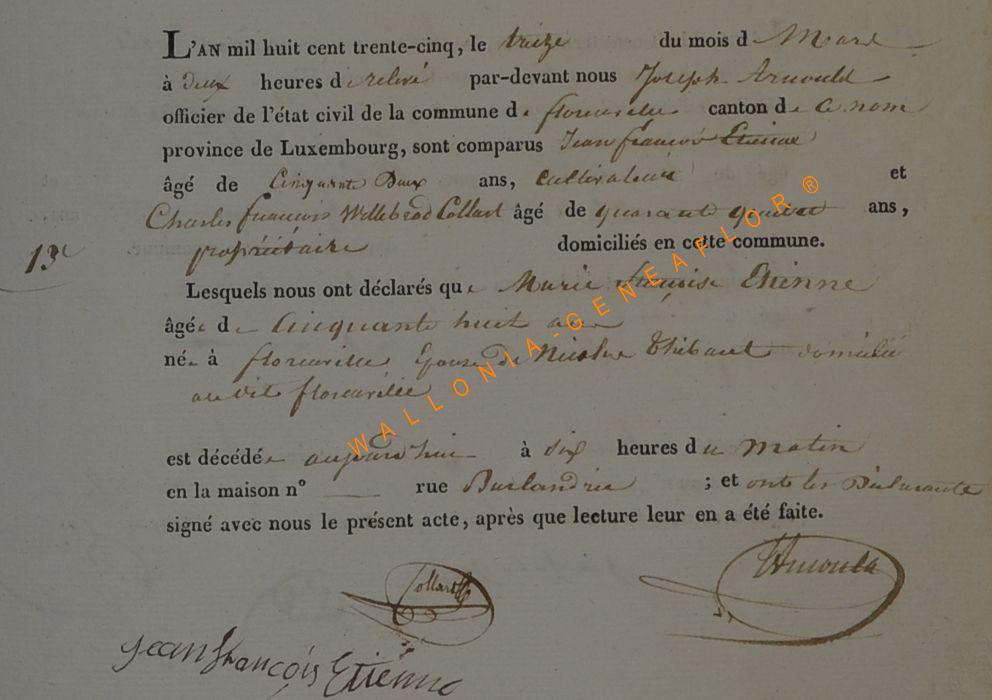 L'AN mil huit cent trente-cinq, le treize du mois de Mars
à deux heures de relevé par-devant nous Joseph Arnould
officier de l'état civil de la commune de florenville canton de ce nom
province de Luxembourg, sont comparus Jean françois Etienne
âgé de Cinquante Deux ans, cultivateur et
Charles François Willebrod Collart âgé de quarante ans,
13e
propriétaire domiciliés en cette commune.
Lesquels nous ont déclarés que Marie françoise Etienne
âgée de Cinquante huit ans
née à florenville Epouse de Nicolas Thibaut domicilié
au dit florenville
est décédée aujourd'hui à six heures du matin
en la maison n° rue ; et onts les Déclarants
signé avec nous le présent acte, après que lecture leur en a été faite.
Collart
Arnould
jean françois Etienne
WALLONIA-GENEAFLOR®